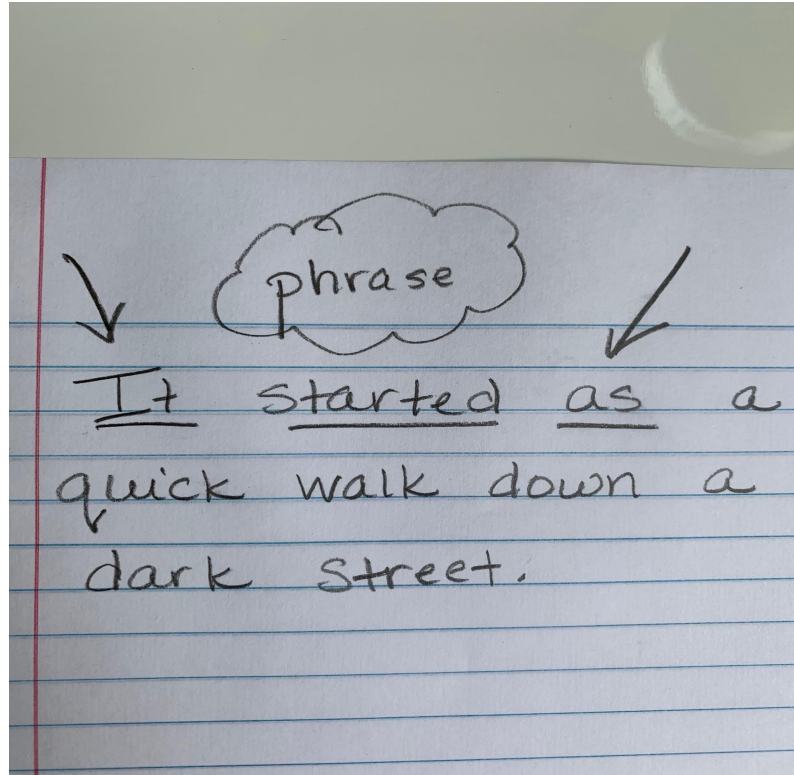 phrase
It started as a
quick walk down a
dark street.